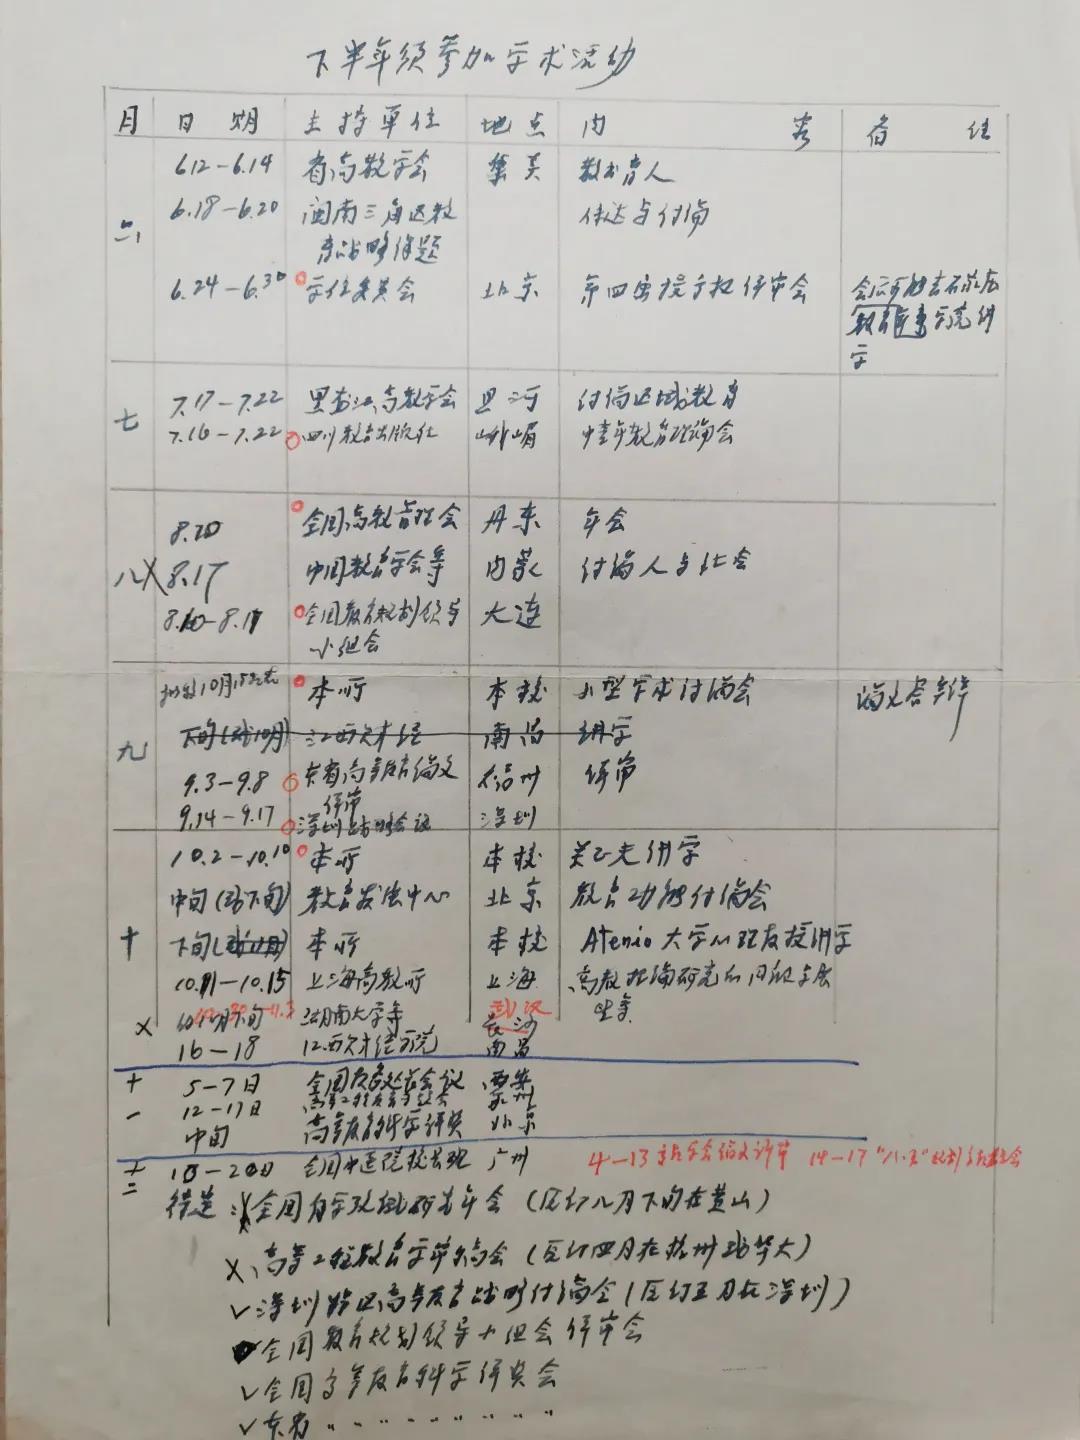 下半年须参加学术活动
月 日 期 主持单位 地点 内 容 备 注
六 6.12-6.14 省高教学会 集美 教书育人
6.18-6.20 闽南三角区教 传达与讨论
育战略课题
6.24-6.30 学位委员会 北京 第四届授予权评审会
会后可能去石家庄
教育学院讲
学
七 7.17-7.22 黑龙江高教学会 黑河 讨论区域教育
7.16-7.22 四川教育出版社 峨嵋 中青年教育理论会
8.20 全国高教管理会 丹东 年会
八 X 8.17 中国教育学会等 内蒙 讨论人与社会
8.10-8.11 全国教育规划领导 大连
小组会
九 10月15 本所 本校 小型学术讨论会
下旬(或10月) 江西财经 南昌 讲学
9.3-9.8 高等教育论文 福州 评审
评审
9.14-9.17 深圳战略会议 深圳
十 10.2-10.10 本所 本校 讲学
中旬(或下旬) 教育发展中心 北京 教育功能讨论会
下旬 本所 本校 Atenio大学心理教授讲学
10.11-10.15 上海高教所 上海 高教理论研究的
座
武汉
X 10月下旬 湖南大学等 长沙
16-18 江西财经学院 南昌
十 5-7日 全国
一 12-17日
中旬 高等教育科学评奖 北京
十 10-20日 全国中医院校长班 广州 4-13 论文评审 14-17 "八·五"规划
二
待定 X 全国 年会(原订八月下旬在黄山)
X 高等工程教育 会(原订四月在杭州或华大)
✓ 深圳特区高等教育战略讨论会(原订五月在深圳)
全国教育规划领导小组会评审会
✓ 全国高等教育科学评奖会
✓ 本省 " " " " " " " " "